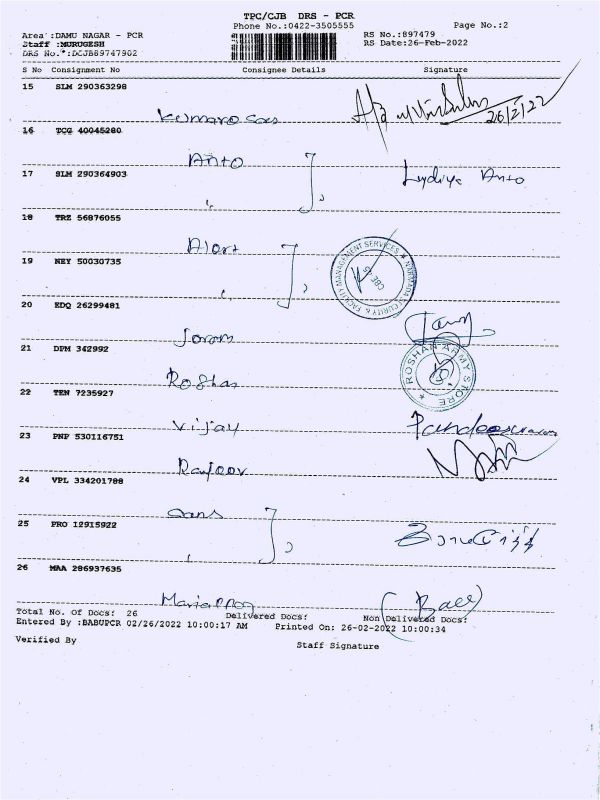 TPC/CJB DRS - PCR
Phone No.:0422-3505555
Page No.:2
Area :DAMU NAGAR - PCR
RS No.:897479
Staff :MURUGESH
RS Date:26-Feb-2022
DRS No.*:DCJB89747902
S No Consignment No Consignee Details Signature
15 SLM 290363298
26/2/22
16 TCG 40045280
Anto
17 SLM 290364903
Lydiya Anto
18 TRZ 56876055
19 NEY 50030735
NARMADA SECURITY & FACILITY MANAGEMENT SERVICES
CBE
20 EDQ 26299481
21 DPM 342992
ROSHAN ARMY STORE
Roshan
22 TEN 7235927
Vijay
23 PNP 530116751
24 VPL 334201788
25 PRO 12915922
26 MAA 286937635
Total No. Of Docs: 26 Delivered Docs: Non Delivered Docs:
Entered By :BABUPCR 02/26/2022 10:00:17 AM Printed On: 26-02-2022 10:00:34
Verified By
Staff Signature